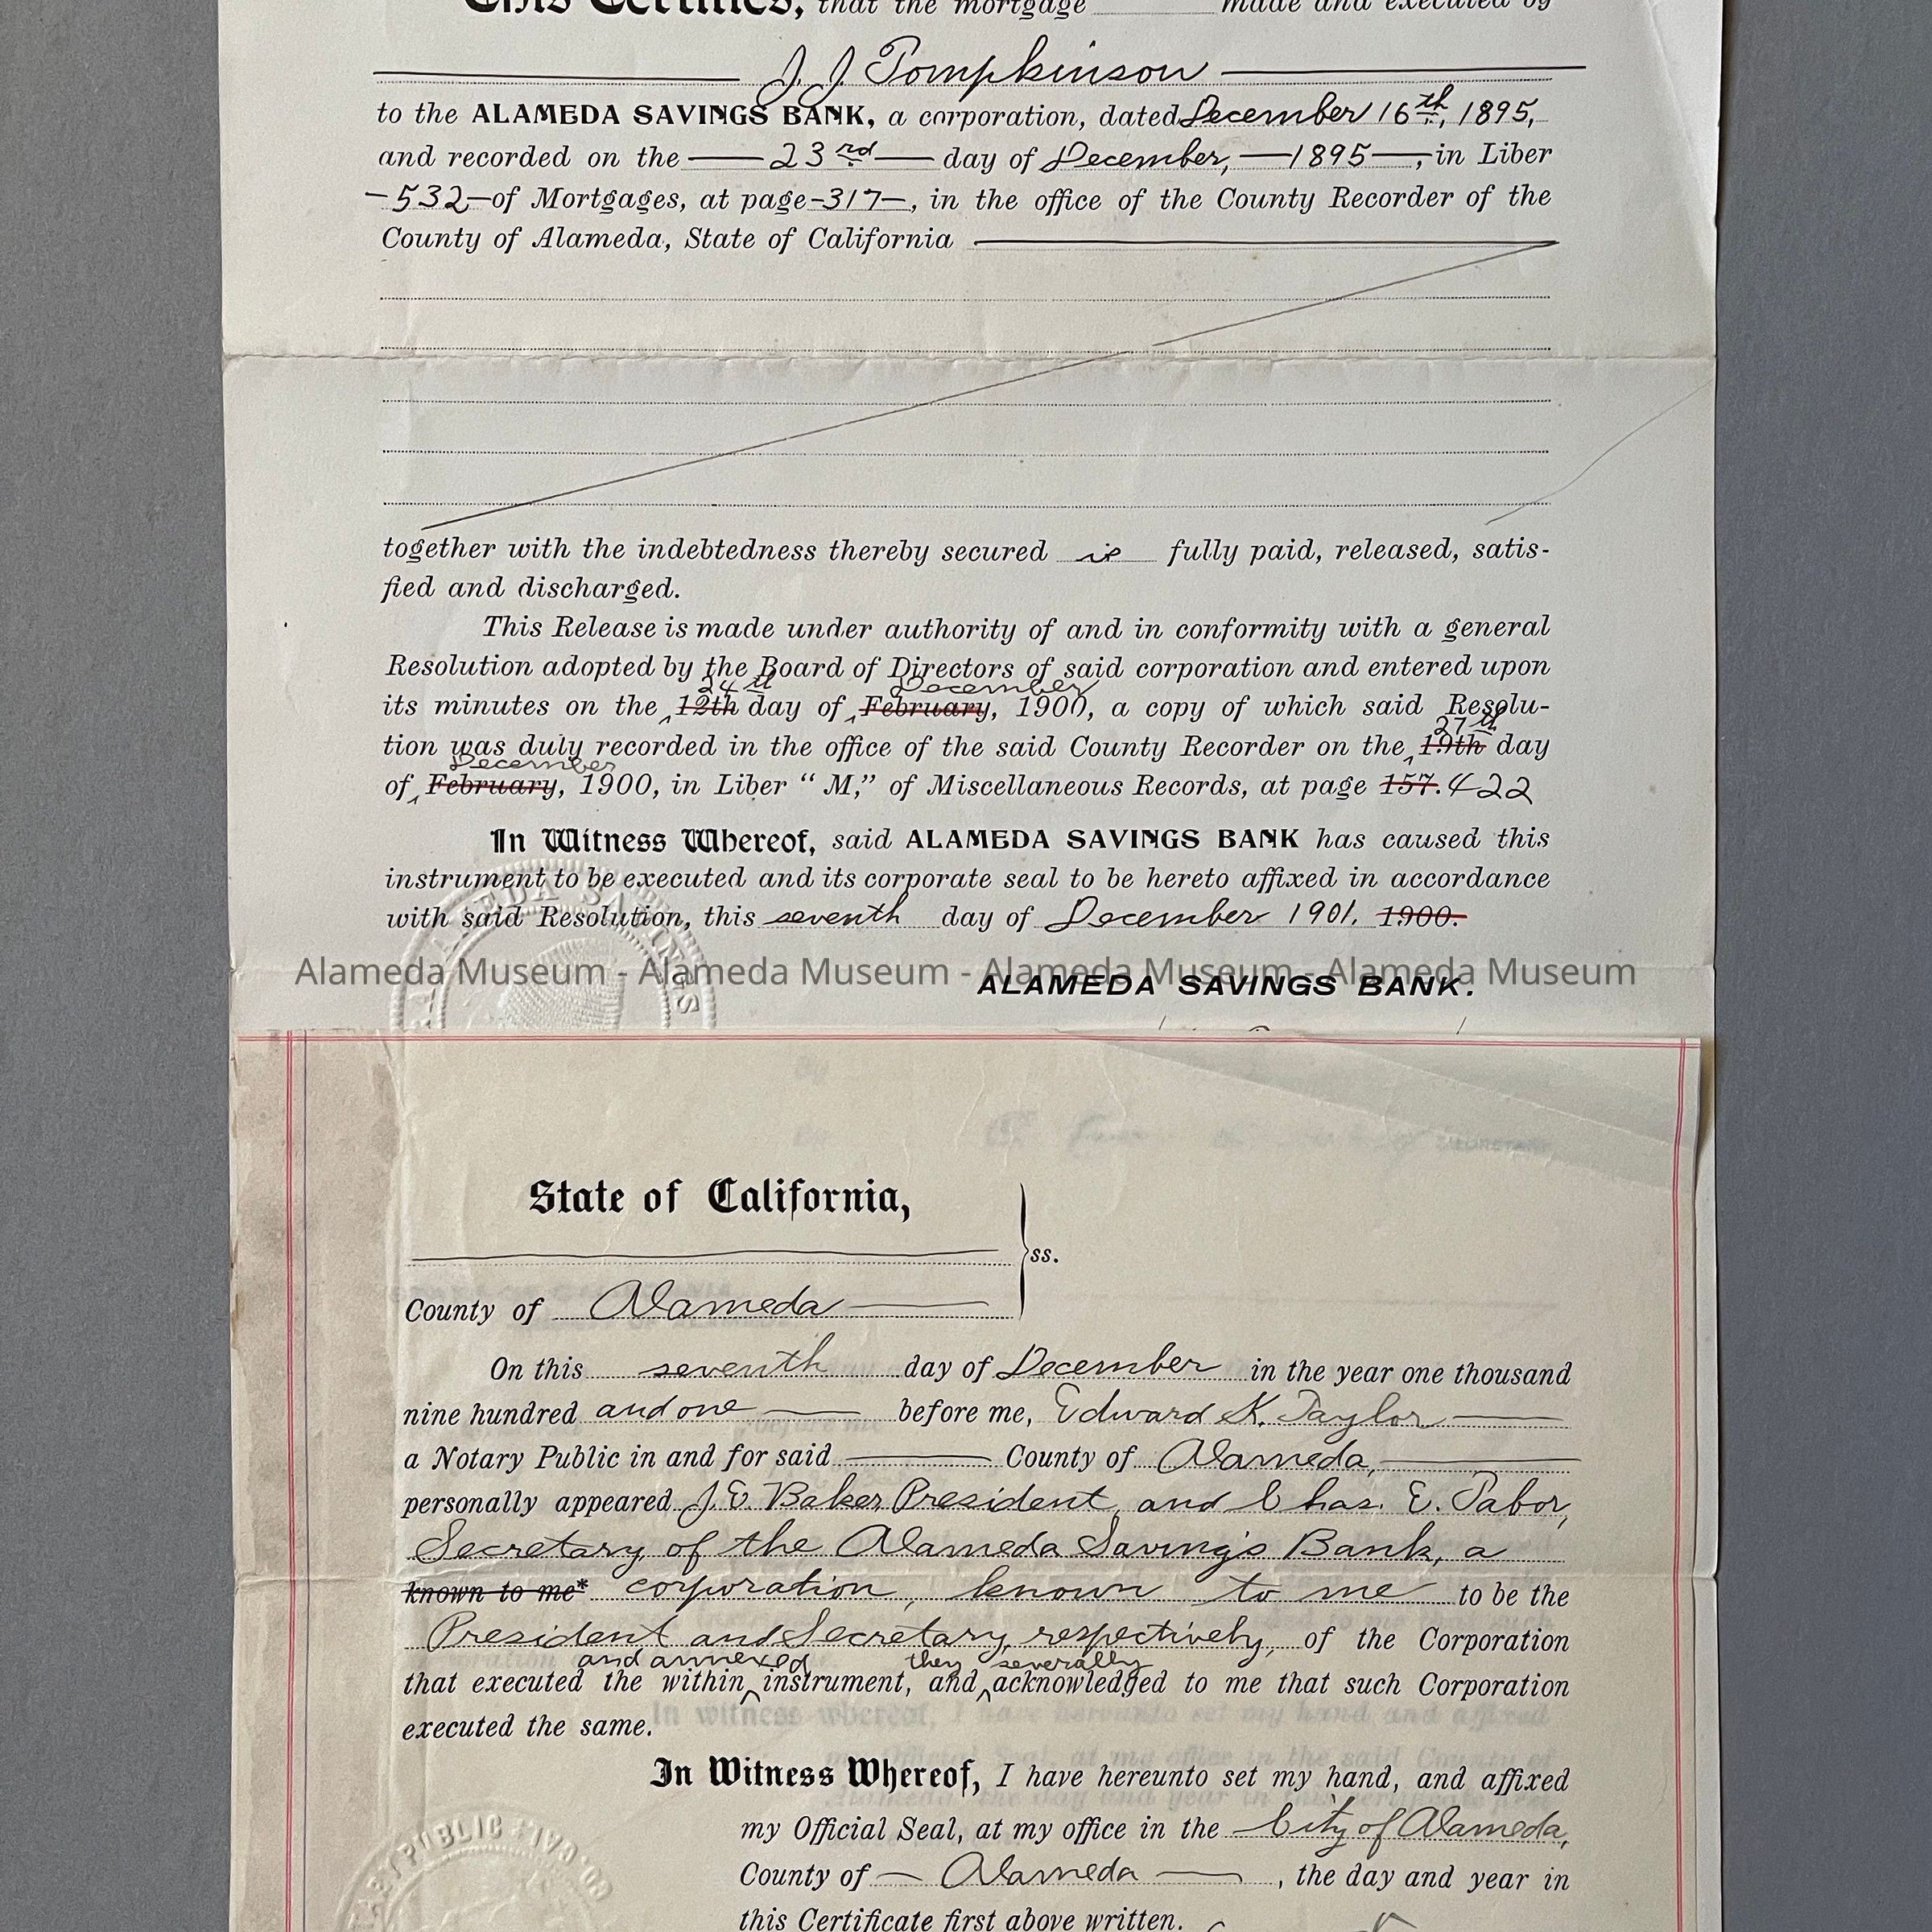 This Certifies, that the mortgage made and executed by
J. J. Tompkinson
to the ALAMEDA SAVINGS BANK, a corporation, dated December 16th, 1895,
and recorded on the — 23rd — day of December, — 1895 —, in Liber
— 532 — of Mortgages, at page - 317 —, in the office of the County Recorder of the
County of Alameda, State of California
together with the indebtedness thereby secured is fully paid, released, satis-
fied and discharged.
This Release is made under authority of and in conformity with a general
Resolution adopted by the Board of Directors of said corporation and entered upon
24th December
its minutes on the ‸ 12th day of ‸ February, 1900, a copy of which said Resolu-
27th
tion was duly recorded in the office of the said County Recorder on the ‸ 19th day
December
of ‸ February, 1900, in Liber “ M,” of Miscellaneous Records, at page 157. 422
In Witness Whereof, said ALAMEDA SAVINGS BANK has caused this
instrument to be executed and its corporate seal to be hereto affixed in accordance
with said Resolution, this seventh day of December 1901. 1900.
ALAMEDA SAVINGS
Alameda Museum - Alameda Museum - Alameda Museum - Alameda Museum
ALAMEDA SAVINGS BANK.
SECRETARY
State of California,
ss.
County of Alameda
On this seventh day of December in the year one thousand
nine hundred and one — before me, Edward K. Taylor —
a Notary Public in and for said — County of Alameda, —
personally appeared J. E. Baker President, and Chas. E. Tabor,
Secretary of the Alameda Savings Bank, a
known to me* corporation, known to me to be the
President and Secretary, respectively, of the Corporation
and annexed they severally
that executed the within ‸ instrument, and ‸ acknowledged to me that such Corporation
executed the same.
In Witness Whereof, I have hereunto set my hand, and affixed
my Official Seal, at my office in the City of Alameda,
County of — Alameda —, the day and year in
this Certificate first above written.
NOTARY PUBLIC